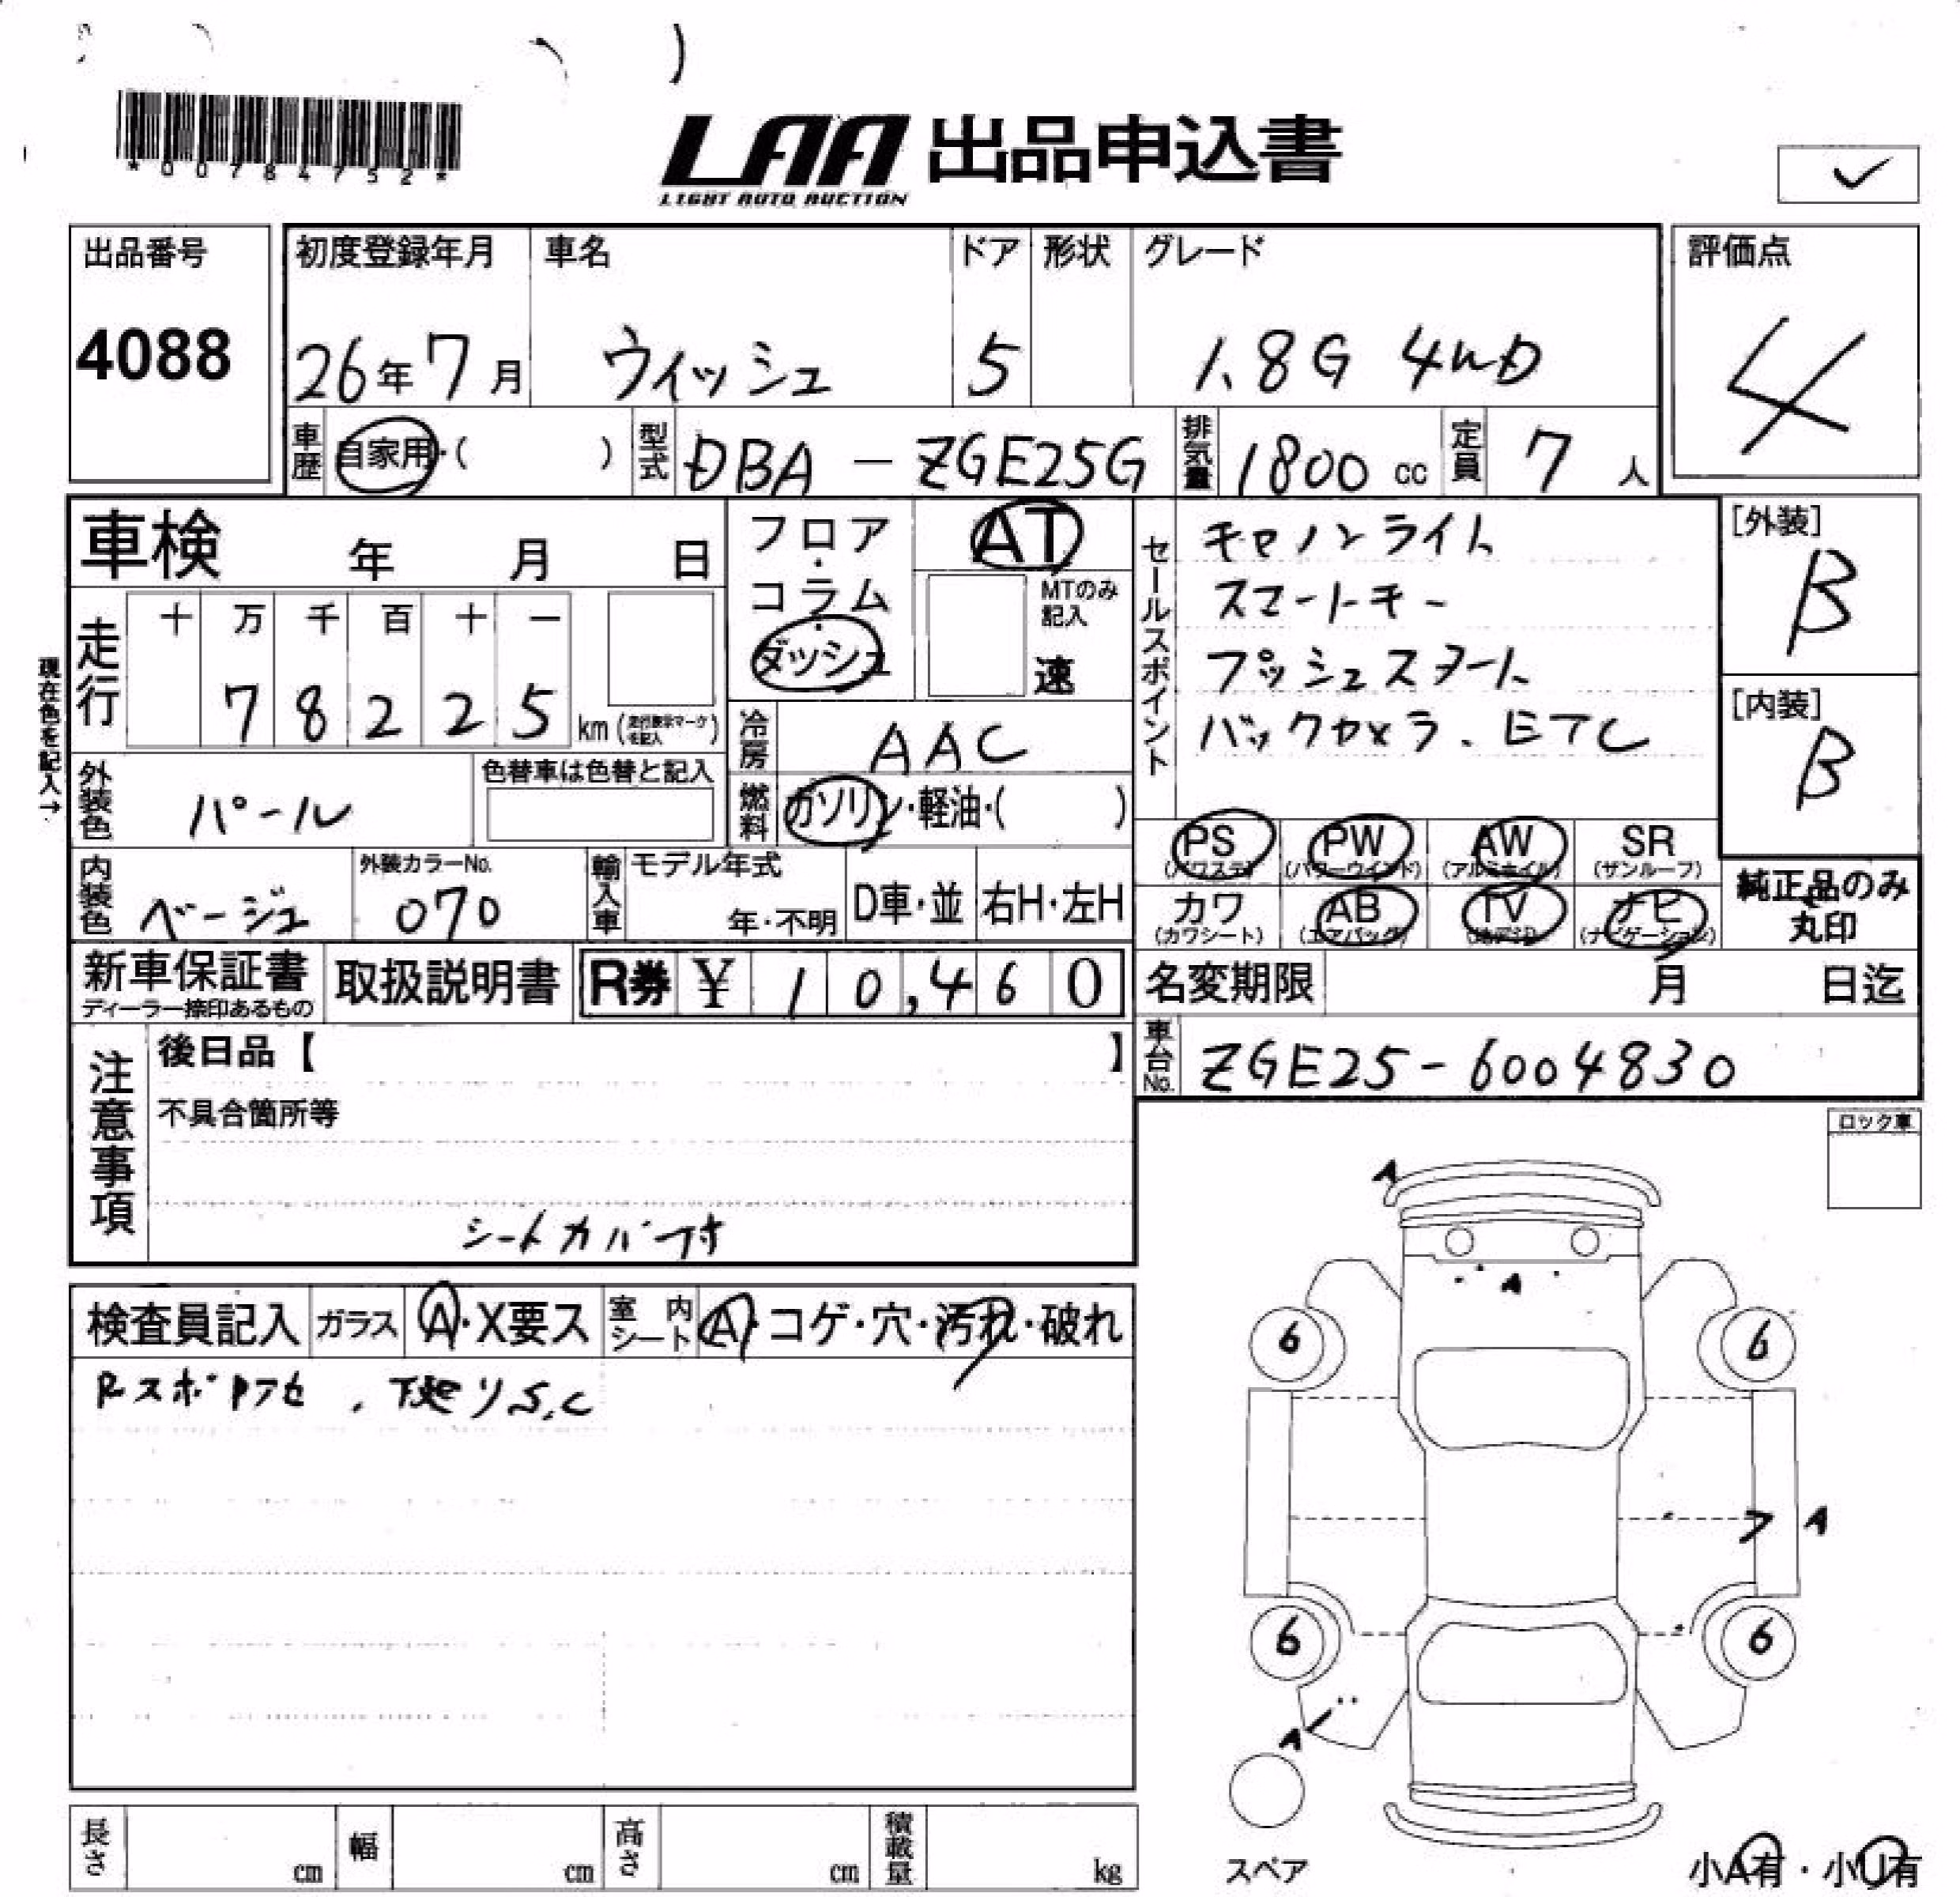 *00784752*
LAA 出品申込書
LIGHT AUTO AUCTION
出品番号
4088
初度登録年月
26年7月
車名
ウィッシュ
ドア
5
形状
グレード
1.8G 4WD
評価点
4
車歴
自家用・( )
型式
DBA-ZGE25G
排気量
1800 cc
定員
7人
車検 年 月 日
走行
十 万 千 百 十 一
7 8 2 2 5
km (走行表示マークを記入)
現在色を記入→
外装色
パール
色替車は色替と記入
内装色
ベージュ
外装カラーNo.
070
フロア・コラム・ダッシュ
AT
MTのみ記入
速
冷房
AAC
燃料
ガソリン・軽油・( )
輸入車
モデル年式
年・不明
D車・並
右H・左H
セールスポイント
キセノンライト
スマートキー
プッシュスタート
バックカメラ. ETC
[外装]
B
[内装]
B
PS
(パワステ)
PW
(パワーウインド)
AW
(アルミホイル)
SR
(サンルーフ)
カワ
(カワシート)
AB
(エアバッグ)
TV
(地デジ)
ナビ
(ナビゲーション)
純正品のみ
丸印
新車保証書
ディーラー捺印あるもの
取扱説明書
R券 ¥ 10,460
名変期限 月 日迄
車台No.
ZGE25-6004830
注意事項
後日品【 】
不具合箇所等
シートカバー付
ロック車
検査員記入
ガラス
A・X要ス
室内シート
A・コゲ・穴・汚れ・破れ
下廻りS,C
A
A
6
6
A
6
6
A
スペア
小A有・小U有
長さ cm
幅 cm
高さ cm
積載量 kg